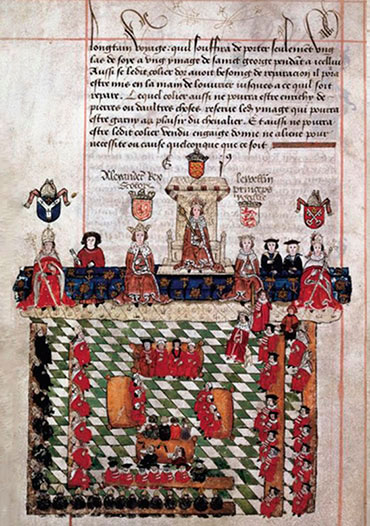 longtain voyage: quil souffira de porter seulement vng
las de soye a vng ymage de sainct george pendāt a icelluy
Aussi se ledit colier dor avoit besoing de reparacion il po͂ra
estre mis en la main de louurier iusques a ce quil soit
repare. Lequel colier aussi ne pourra estre enrichy de
pierres ou daultres choses reserue les ymage qui pourra
estre garny au plaisir du cheualier. Et aussi ne pourra
estre ledit colier vendu engaige donne ne aliene pour
necessite ou cause quelconque que ce soit.
Alexander Rex
Scotorꝫ
princeps
wallie